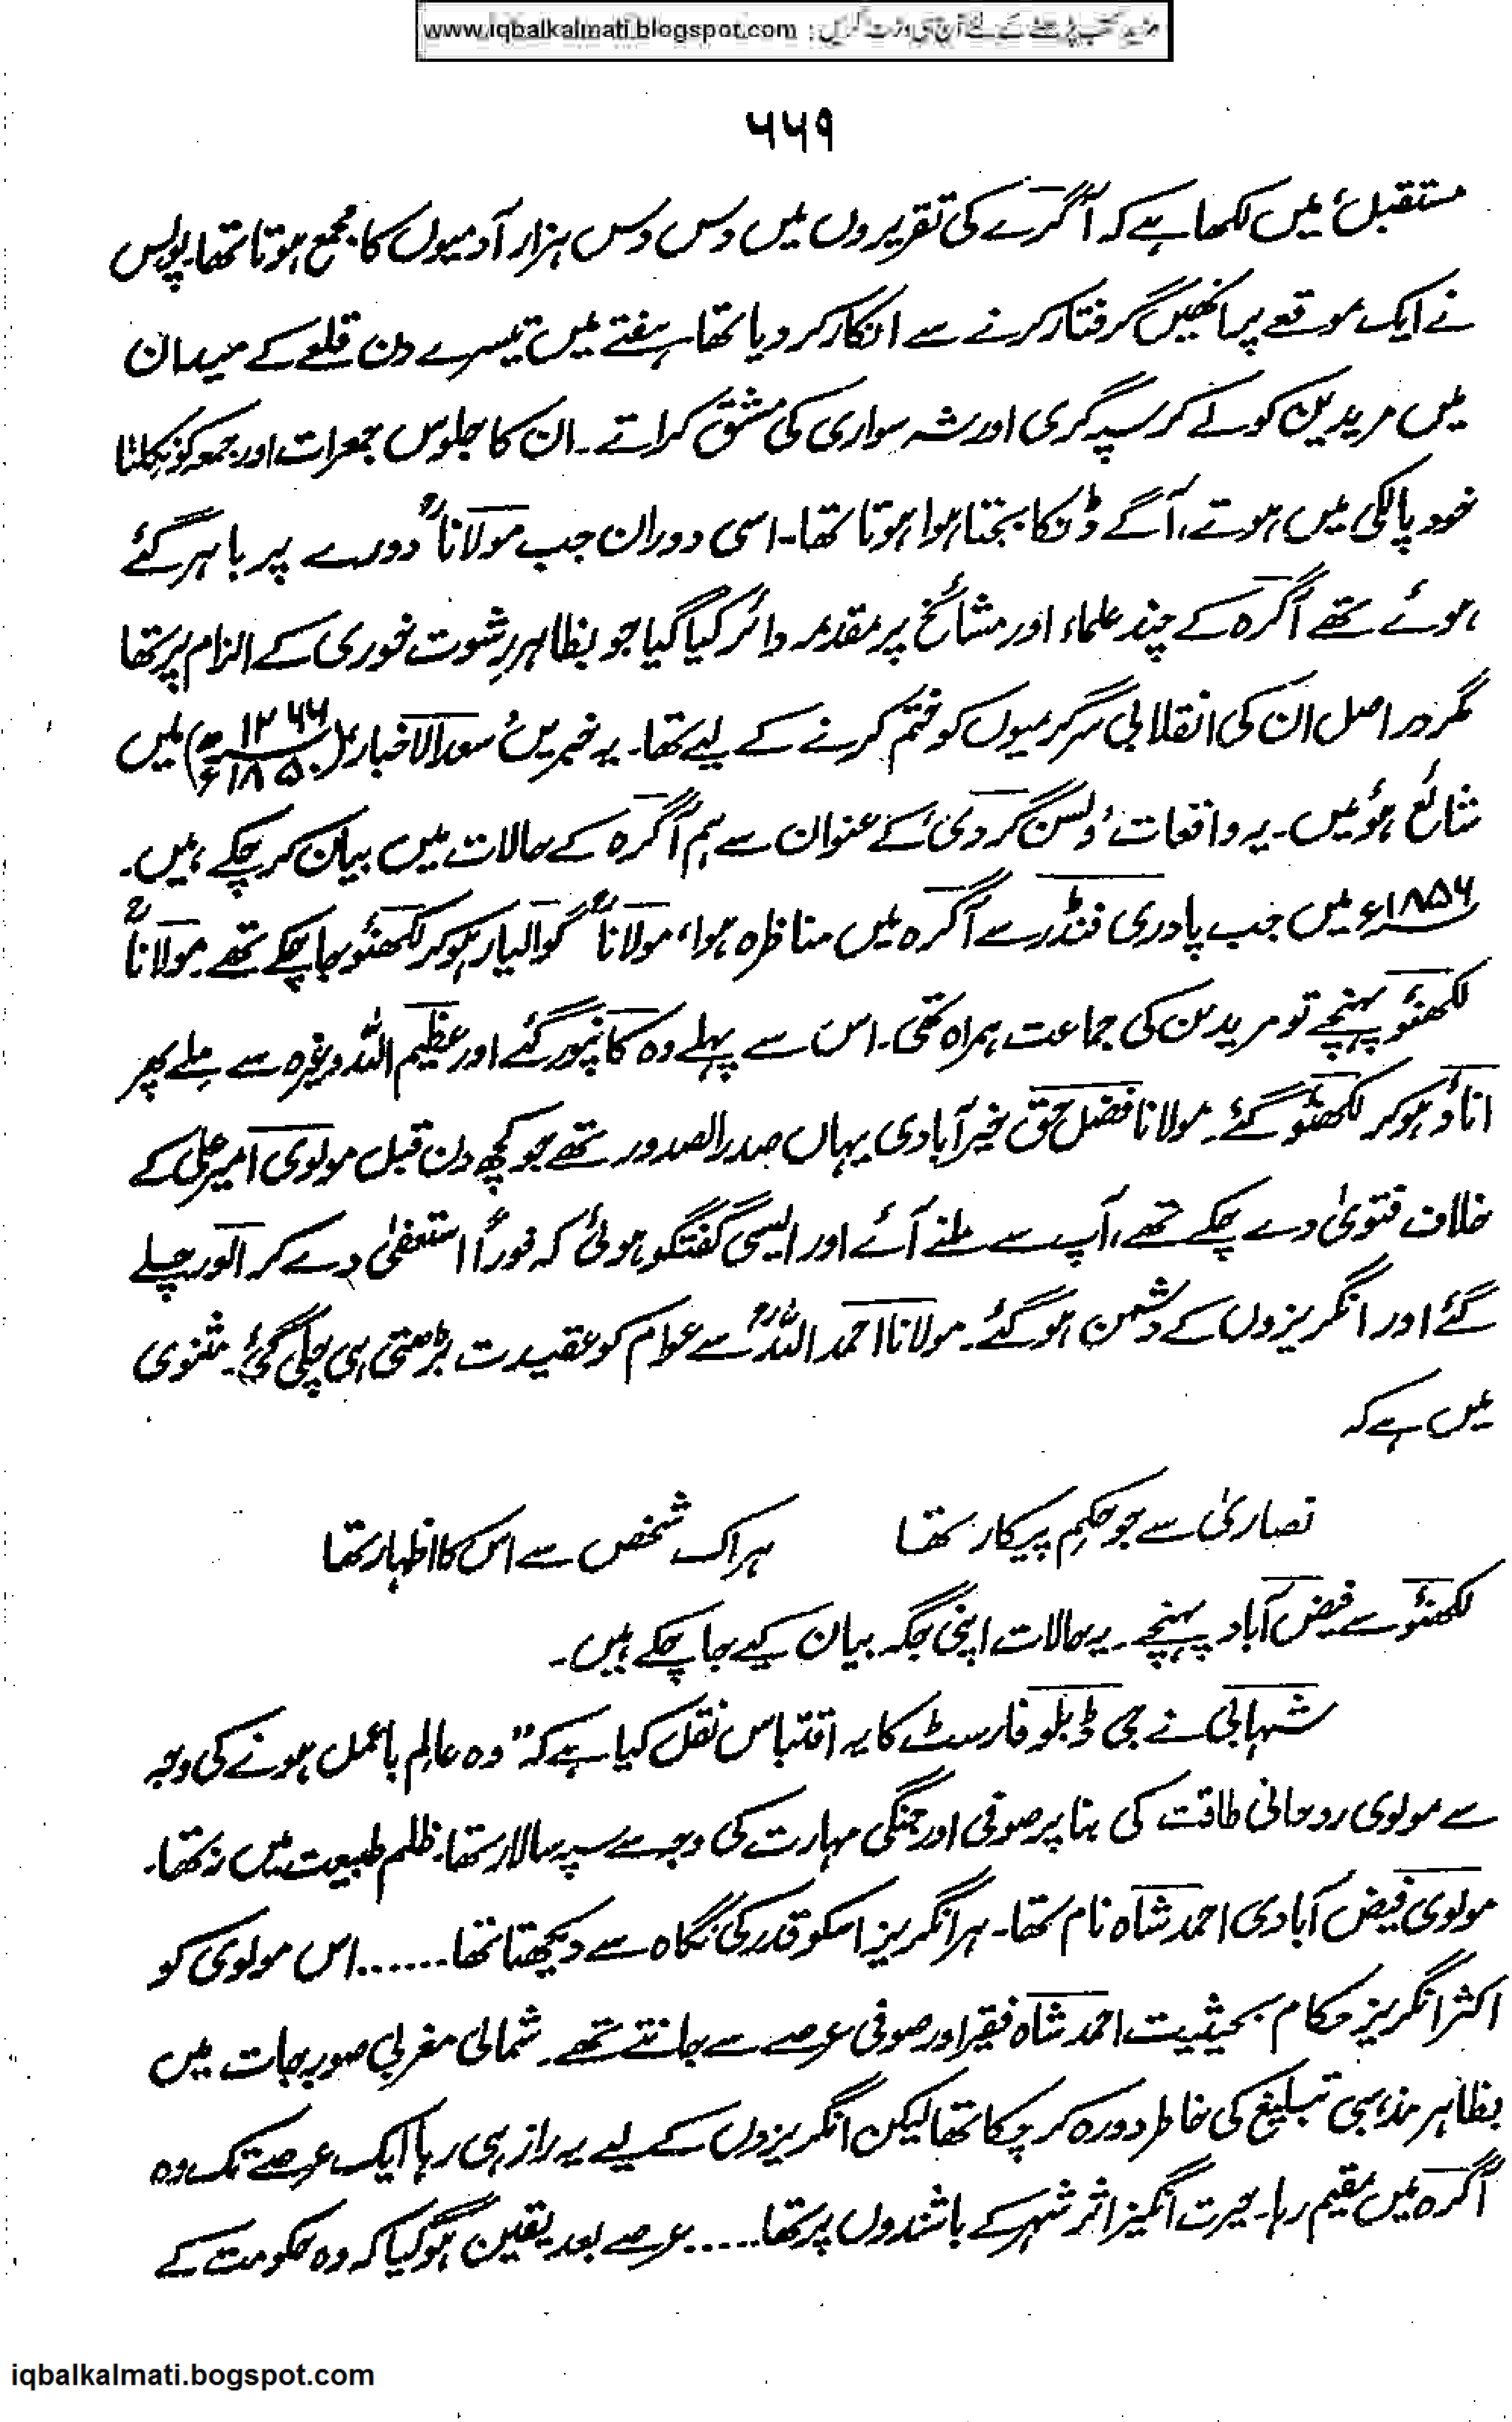 www.iqbalkalmati.blogspot.com : مزید کتب پڑھنے کے لئے آج ہی وزٹ کریں
۵۵۹
مستقبل' میں لکھا ہے کہ آگرے کی تقریروں میں دس دس ہزار آدمیوں کا مجمع ہوتا تھا۔ پولس
نے ایک موقعے پر انھیں گرفتار کرنے سے انکار کر دیا تھا ہفتے میں تیسرے دن قلعے کے میدان
میں مریدین کو لے کر سپہ گری اور شہ سواری کی مشق کراتے۔ ان کا جلوس جمعرات اور جمعہ کو نکلتا
خود پالکی میں ہوتے، آگے ڈنکا بجتا ہوا ہوتا تھا۔ اسی دوران جب مولاناؒ دورے پر باہر گئے
ہوئے تھے آگرہ کے چند علماء اور مشائخ پر مقدمہ دائر کیا گیا جو بظاہر رشوت خوری کے الزام پر تھا
مگر در اصل ان کی انقلابی سرگرمیوں کو ختم کرنے کے لیے تھا۔ یہ خبریں 'سعد الاخبار' (۱۲۶۶ھ ۱۸۵۰ء) میں
شائع ہوئیں۔ یہ واقعات 'ولسن گردی' کے عنوان سے ہم آگرہ کے حالات میں بیان کر چکے ہیں۔
۱۸۵۶ء میں جب پادری فنڈر سے آگرہ میں مناظرہ ہوا، مولاناؒ گوالیار ہو کر لکھنؤ جا چکے تھے۔ مولاناؒ
لکھنؤ پہنچے تو مریدین کی جماعت ہمراہ تھی۔ اس سے پہلے وہ کانپور گئے اور عظیم اللہ وغیرہ سے ملے پھر
اناؤ ہو کر لکھنؤ گئے۔ مولانا فضل حق خیرآبادی یہاں صدر الصدور تھے جو کچھ دن قبل مولوی امیر علی کے
خلاف فتویٰ دے چکے تھے، آپ سے ملنے آئے اور ایسی گفتگو ہوئی کہ فوراً استعفیٰ دے کر الور چلے
گئے اور انگریزوں کے دشمن ہو گئے۔ مولانا احمد اللہؒ سے عوام کو عقیدت بڑھتی ہی چلی گئی۔ مثنوی
میں ہے کہ
نصاریٰ سے جو حکمِ پیکار تھا ہر اک شخص سے اس کا اظہار تھا
لکھنؤ سے فیض آباد پہنچے۔ یہ حالات اپنی جگہ بیان کیے جا چکے ہیں۔
شہابی نے جی ڈبلو فارسٹ کا یہ اقتباس نقل کیا ہے کہ "وہ عالم باعمل ہونے کی وجہ
سے مولوی روحانی طاقت کی بنا پر صوفی اور جنگی مہارت کی وجہ سے سپہ سالار تھا۔ ظلم طبیعت میں نہ تھا۔
مولوی فیض آبادی احمد شاہ نام تھا۔ ہر انگریز اسکو قدر کی نگاہ سے دیکھتا تھا ....... اس مولوی کو
اکثر انگریز حکام بحیثیت احمد شاہ فقیر اور صوفی عرصے سے جانتے تھے۔ شمالی مغربی صوبہ جات میں
بظاہر مذہبی تبلیغ کی خاطر دورہ کر چکا تھا لیکن انگریزوں کے لیے یہ راز ہی رہا ایک عرصے تک وہ
آگرہ میں مقیم رہا۔ حیرت انگیز اثر شہر کے باشندوں پر تھا...... عرصے بعد یقین ہو گیا کہ وہ حکومت کے
iqbalkalmati.bogspot.com